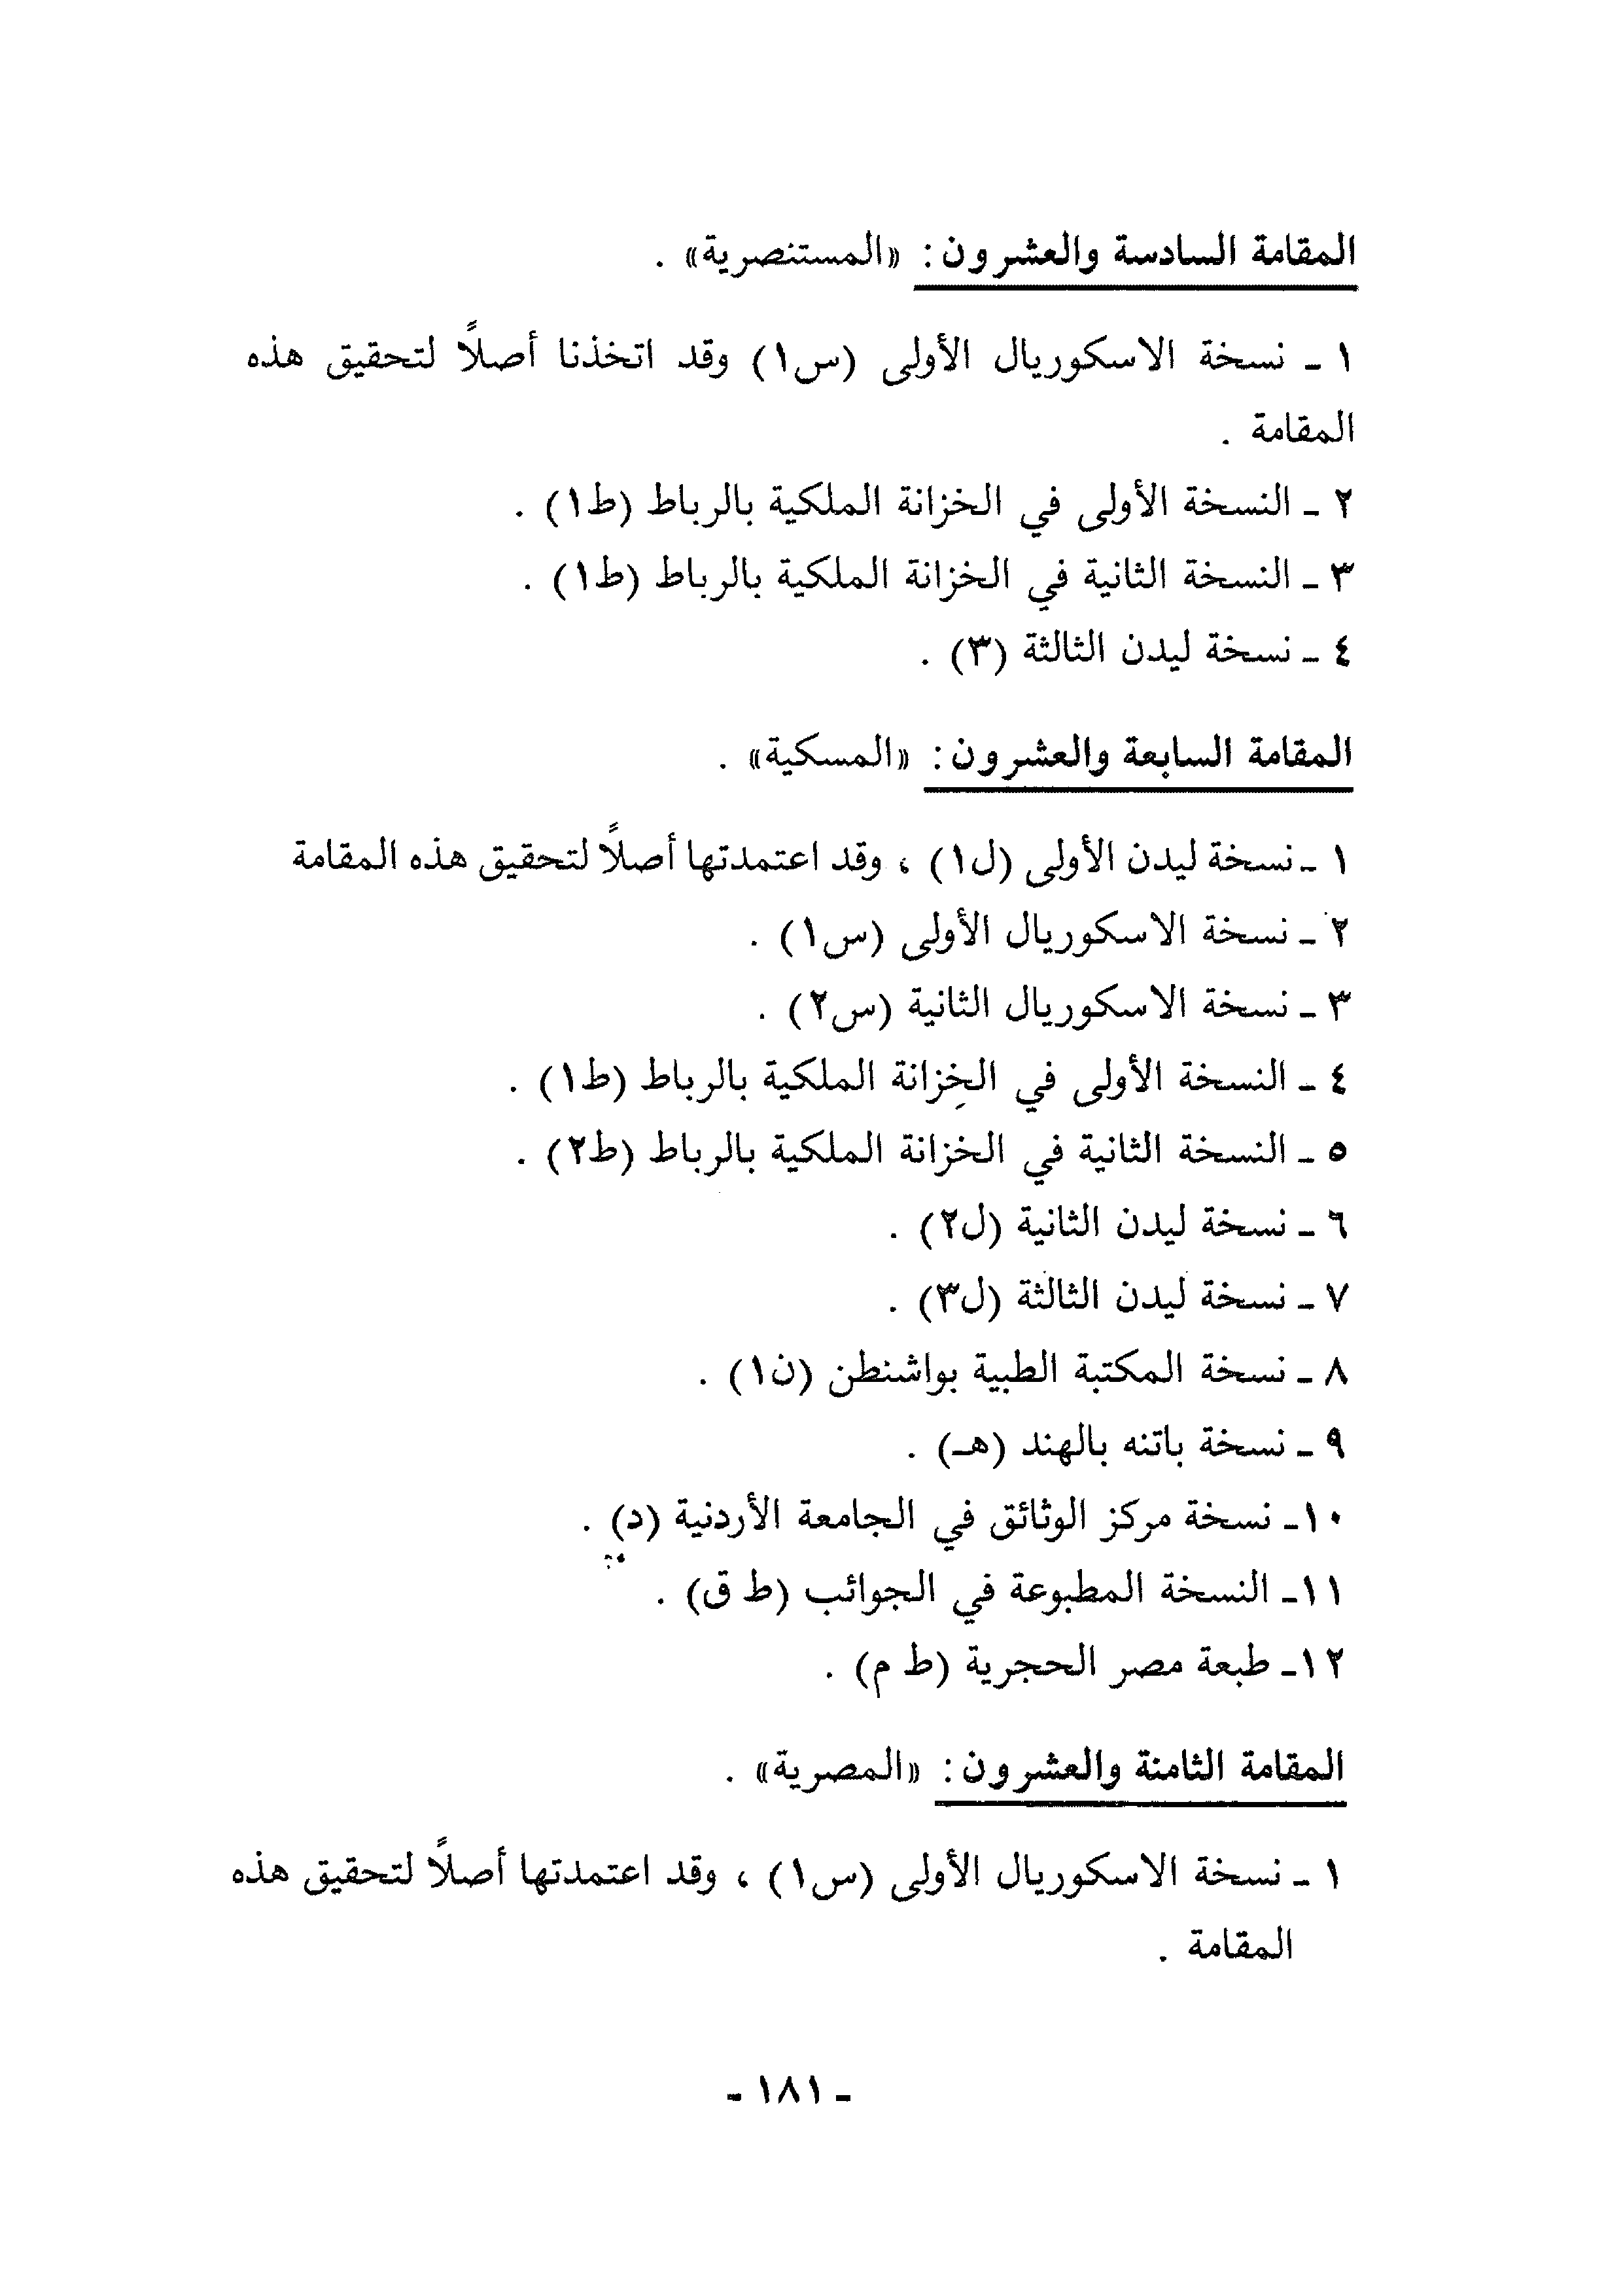 المقامة السادسة والعشرون: «المستنصرية» .
١ ـ نسخة الاسكوريال الأولى (س١) وقد اتخذنا أصلاً لتحقيق هذه
المقامة .
٢ ـ النسخة الأولى في الخزانة الملكية بالرباط (ط١) .
٣ ـ النسخة الثانية في الخزانة الملكية بالرباط (ط١) .
٤ ـ نسخة ليدن الثالثة (٣) .
المقامة السابعة والعشرون: «المسكية» .
١ ـ نسخة ليدن الأولى (ل١) ، وقد اعتمدتها أصلاً لتحقيق هذه المقامة
٢ ـ نسخة الاسكوريال الأولى (س١) .
٣ ـ نسخة الاسكوريال الثانية (س٢) .
٤ ـ النسخة الأولى في الخزانة الملكية بالرباط (ط١) .
٥ ـ النسخة الثانية في الخزانة الملكية بالرباط (ط٢) .
٦ ـ نسخة ليدن الثانية (ل٢) .
٧ ـ نسخة ليدن الثالثة (ل٣) .
٨ ـ نسخة المكتبة الطبية بواشنطن (ن١) .
٩ ـ نسخة باتنه بالهند (هـ) .
١٠ـ نسخة مركز الوثائق في الجامعة الأردنية (د) .
١١ـ النسخة المطبوعة في الجوائب (ط ق) .
١٢ـ طبعة مصر الحجرية (ط م) .
المقامة الثامنة والعشرون: «المصرية» .
١ ـ نسخة الاسكوريال الأولى (س١) ، وقد اعتمدتها أصلاً لتحقيق هذه
المقامة .
ـ ١٨١ ـ